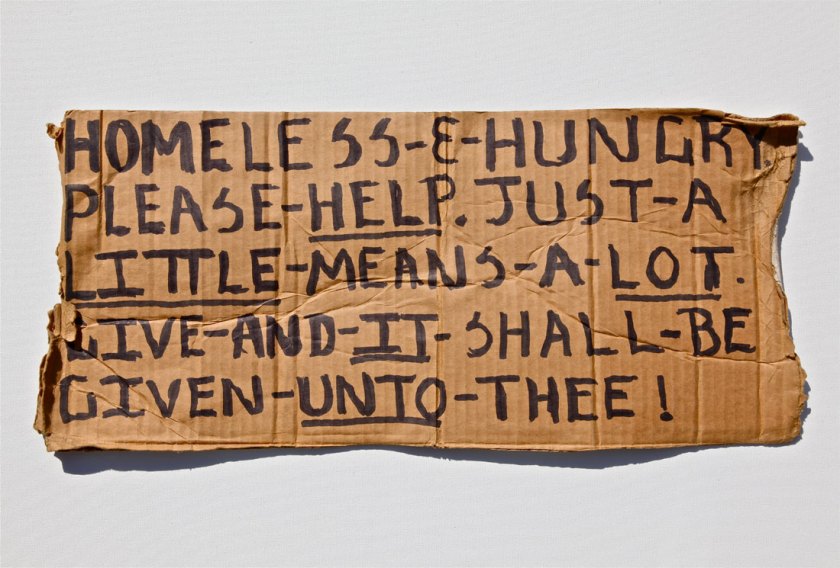 HOMELESS-&-HUNGRY.
PLEASE-HELP. JUST-A
LITTLE-MEANS-A-LOT.
GIVE-AND-IT-SHALL-BE
GIVEN-UNTO-THEE!